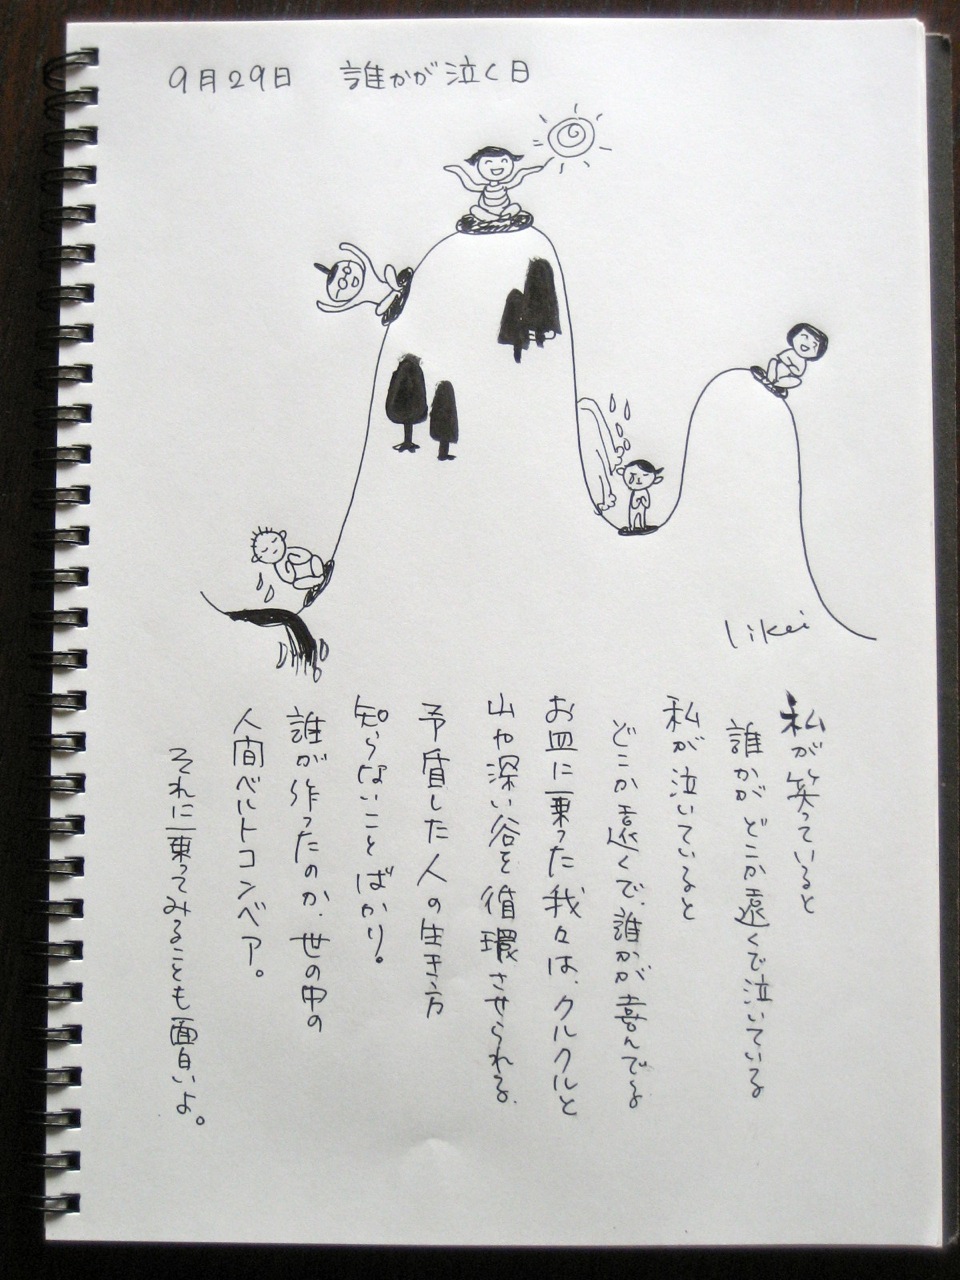 9月29日　誰かが泣く日
likei
私が笑っていると
誰かがどこか遠くで泣いている
私が泣いていると
どこか遠くで、誰かが喜んでる
お皿に乗った我々は、クルクルと
山や深い谷を循環させられる。
予盾した人の生き方
知らないことばかり。
誰が作ったのか、世の中の
人間ベルトコンベア。
それに乗ってみることも面白いよ。